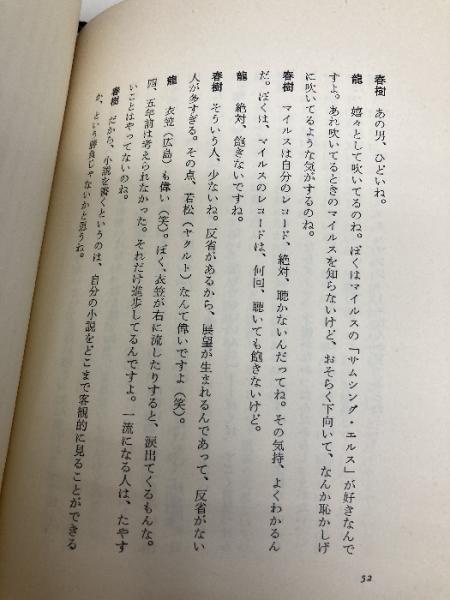 春樹　あの男、ひどいね。
龍　嬉々として吹いてるのね。ぼくはマイルスの「サムシング・エルス」が好きなんで
すよ。あれ吹いてるときのマイルスを知らないけど、おそらく下向いて、なんか恥かしげ
に吹いてるような気がするのね。
春樹　マイルスは自分のレコード、絶対、聴かないんだってね。その気持、よくわかるん
だ。ぼくは、マイルスのレコードは、何回、聴いても飽きないけど。
龍　絶対、飽きないですね。
春樹　そういう人、少ないね。反省があるから、展望が生まれるんであって、反省がない
人が多すぎる。その点、若松（ヤクルト）なんて偉いですよ（笑）。
龍　衣笠（広島）も偉い（笑）。ぼく、衣笠が右に流したりすると、涙出てくるもんな。
四、五年前は考えられなかった。それだけ進歩してるんですよ。一流になる人は、たやす
いことはやってないのね。
春樹　だから、小説を書くというのは、自分の小説をどこまで客観的に見ることができる
か、という勝負じゃないかと思うね。
52